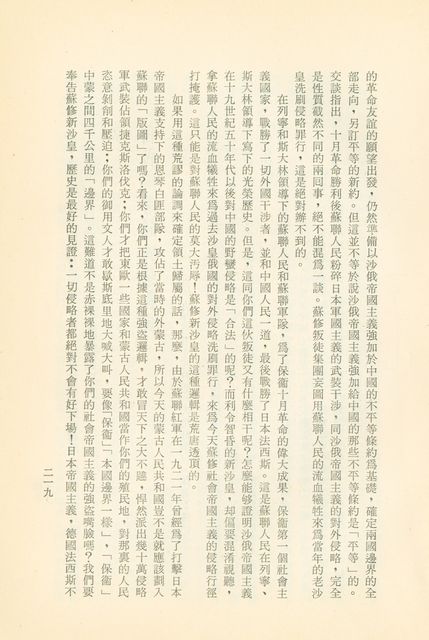 的革命友誼的願望出發，仍然準備以沙俄帝國主義強加於中國的不平等條約爲基礎，確定兩國邊界的全
部走向，另訂平等的新約。但這並不等於說沙俄帝國主義強加給中國的那些不平等條約是「平等」的。
交談指出，十月革命勝利後蘇聯人民粉碎日本軍國主義的武裝干涉，同沙俄帝國主義的對外侵略，完全
是性質截然不同的兩囘事，絕不能混爲一談。蘇修叛徒集團妄圖用蘇聯人民的流血犧牲來爲當年的老沙
皇洗刷侵略罪行，這是絕對辦不到的。
在列寧和斯大林領導下的蘇聯人民和蘇聯軍隊，爲了保衞十月革命的偉大成果，保衞第一個社會主
義國家，戰勝了一切外國干涉者，並和中國人民一道，最後戰勝了日本法西斯。這是蘇聯人民在列寧、
斯大林領導下寫下的光榮歷史。但是，這同你們這伙叛徒又有什麼相干呢？怎麼能够證明沙俄帝國主義
在十九世紀五十年代以後對中國的野蠻侵略是「合法」的呢？而利令智昏的新沙皇，却偏要混淆視聽，
拿蘇聯人民的流血犧牲來爲過去沙皇俄國的對外侵略洗刷罪行，來爲今天蘇修社會帝國主義的侵略行徑
打掩護。這只能是對蘇聯人民的莫大污辱！蘇修新沙皇的這種邏輯是荒唐透頂的。
如果用這種荒謬的論調來確定領土歸屬的話，那麼，由於蘇聯紅軍在一九二一年曾經爲了打擊日本
帝國主義支持下的恩琴白匪部隊，攻佔了當時的外蒙古，所以今天的蒙古人民共和國豈不是就應該劃入
蘇聯的「版圖」了嗎？看來，你們正是根據這種強盜邏輯，才敢冒天下之大不韙，悍然派出幾十萬侵略
軍武裝佔領捷克斯洛伐克；你們才把東歐一些國家和蒙古人民共和國當作你們的殖民地，對那裏的人民
恣意剝削和壓迫；你們的御用文人才敢歇斯底里地大喊大叫，要像「保衞」「本國邊界一樣」，「保衞」
中蒙之間四千公里的「邊界」。這難道不是赤裸裸地暴露了你們的社會帝國主義的強盜嘴臉嗎？我們要
奉告蘇修新沙皇，歷史是最好的見證：一切侵略者都絕對不會有好下場！日本帝國主義，德國法西斯不
二一九